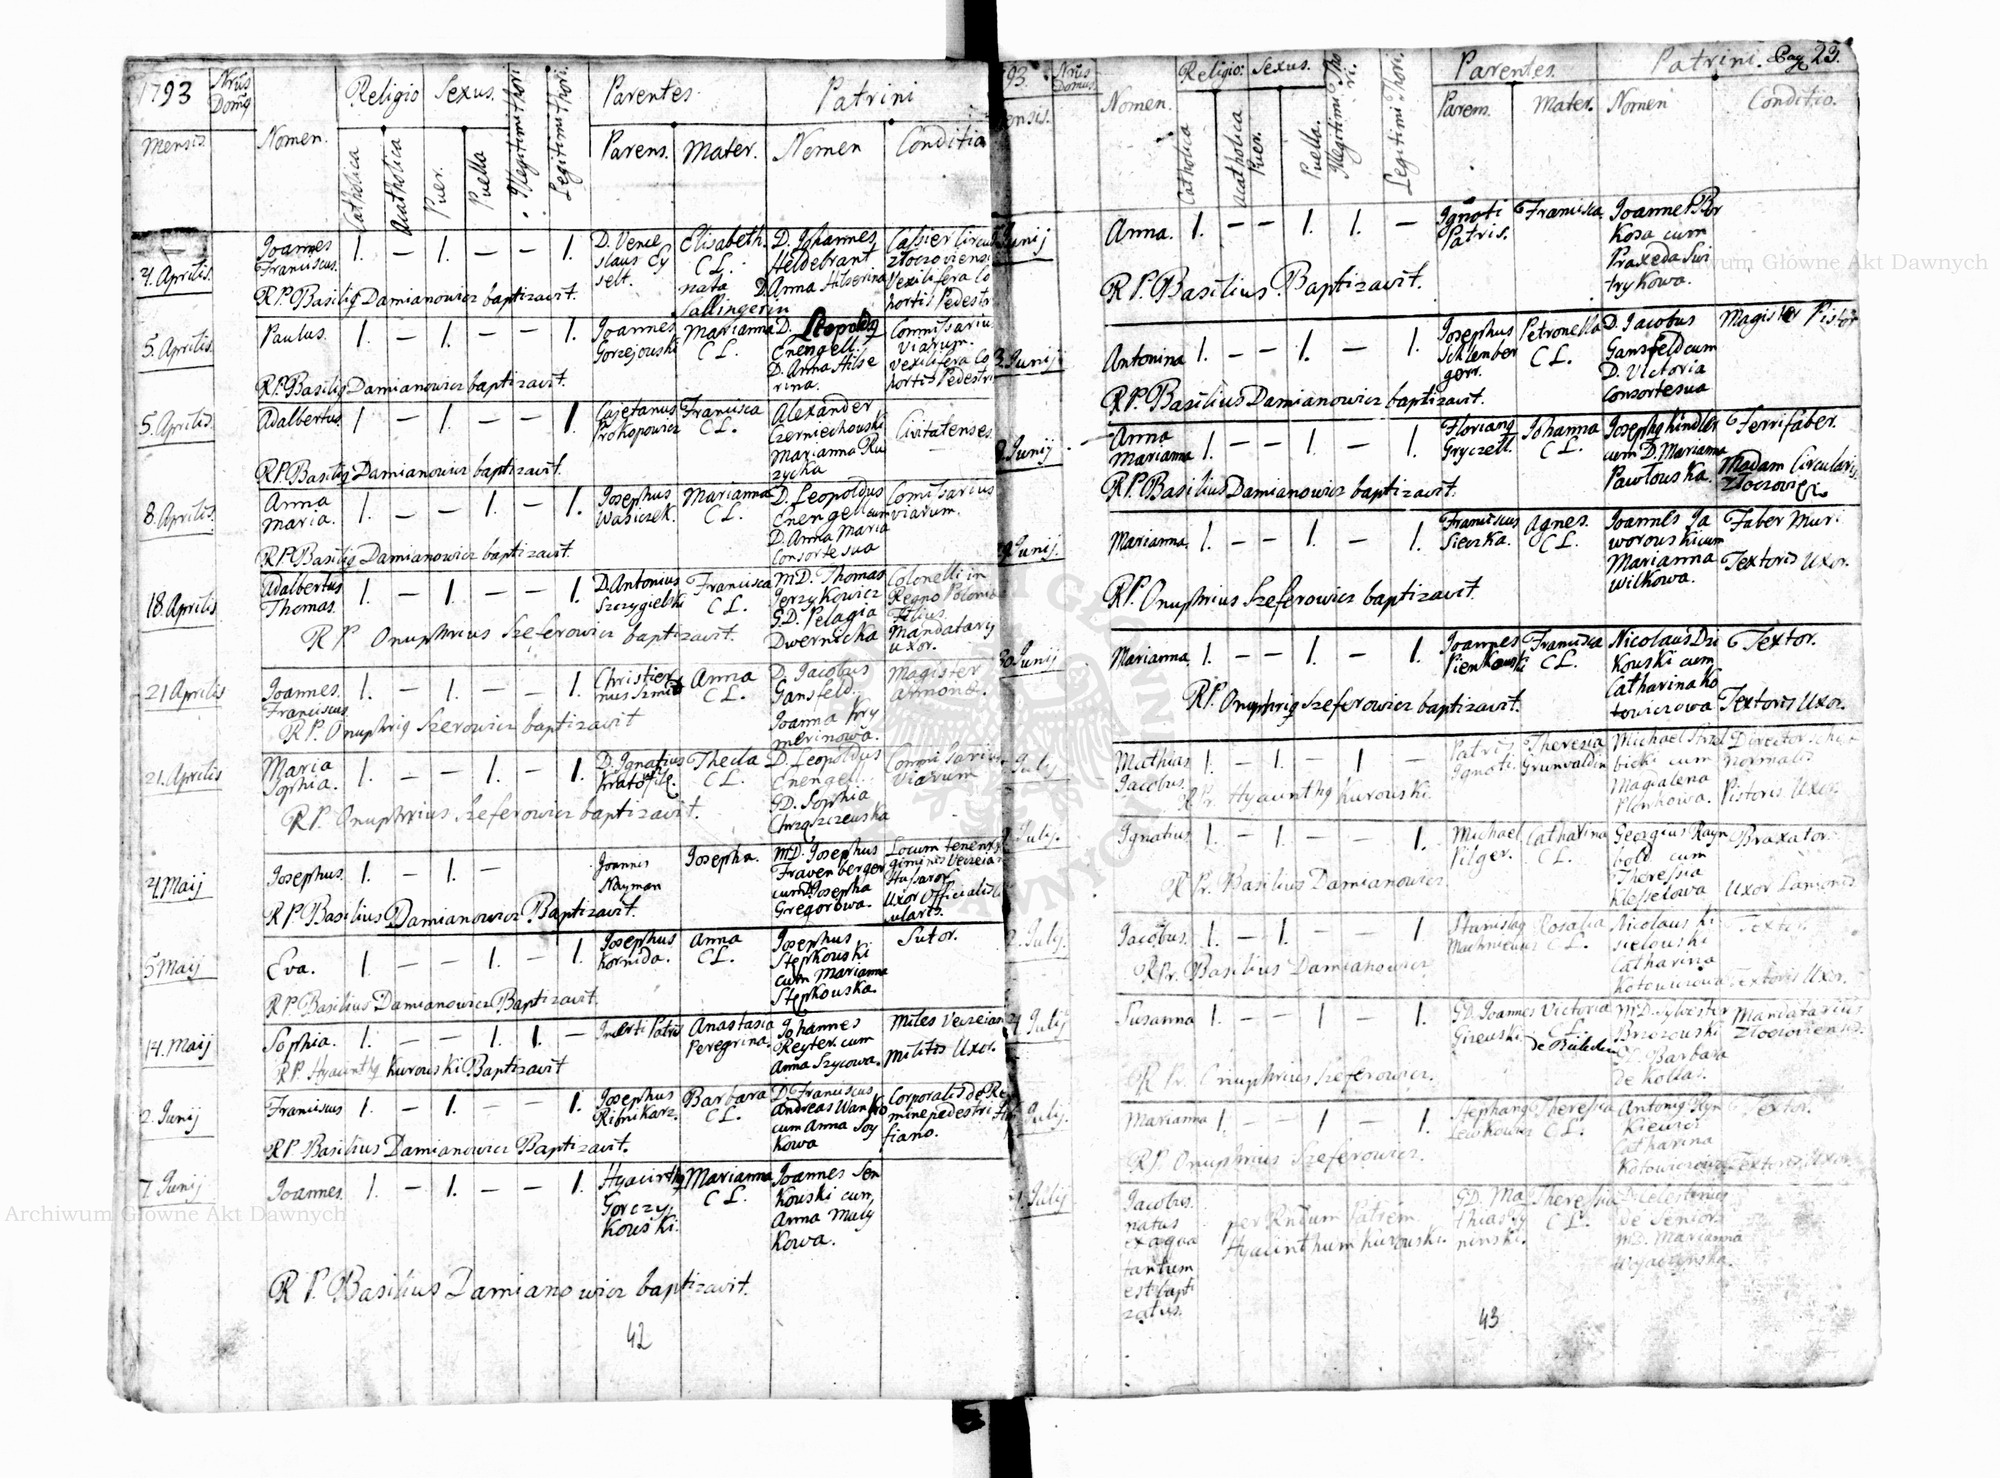 1793 Nrus Domq
Religio Sexus. Illegitimi Thori. Legitimi Thori. Parentes. Patrini
Mensis Nomen. Catholica Acatholica Puer. Puella Parens. Mater. Nomen Conditio
4. Aprilis. Joannes Franciscus. 1. – 1. – – 1. D. Vence
slaus Cy
selt. Elisabeth.
C L.
nata
Sallingerin D. Johannes
Heldebrant
D. Anna Hilserina Cassier Circu
Złoczoviensi
Vexilifera Co
hortis Pedestri
R P. Basiliq Damianowicz baptizavit.
5. Aprilis. Paulus. 1. – 1. – – 1. Joannes
Gorzejouski Marianna
C L. D. Leopoldq
Enengell.
D. Anna Hilse
rina. Commissarius
Viarum.
Vexilifera Co
hortis Pedestri
R P. Basiliq Damianowicz baptizavit.
5. Aprilis. Adalbertus. 1. – 1. – – 1. Cajetanus
Prokopowicz Francisca
C L. Alexander
Czerniechouski
Marianna Ru
zycka Civitatenses.
R P. Basiliq Damianowicz baptizavit.
8. Aprilis. Anna
Maria. 1. – – 1. – 1. Josephus
Wasiczek. Marianna
C L. D. Leopoldus
Enengell cum
D. Anna Maria
Consorte sua Comissarius
viarum.
R P. Basiliq Damianowicz baptizavit.
18 Aprilis Adalbertus
Thomas. 1. – 1. – – 1. D. Antonius
Szczygielski Francisca
C L. MD. Thomas
Jerzykowicz
G.D. Pelagia
Dwernicka Colonelli in
Regno Polonia
Filius.
Mandatary
Uxor.
R P Onuphrius Szeferowicz baptizavit.
21 Aprilis Joannes.
Franciscus 1. – 1. – – 1. Christier
nus Szmit Anna
C L. D. Jacobus
Gansfeld.
Joanna Kry
merinowa. Magister
R P. Onuphriq Szerowicz baptizavit
21. Aprilis Maria
Sophia. 1. – – 1. – 1. D. Ignatius Theda
C L. D. Leopoldus
Enengell.
GD. Sophia
Chrząszczewska Commissarius
Viarum
R P. Onuphrius Szeferowicz baptizavit.
4 Maij Josephus. 1. – 1. – Joannis
Nayman Josepha. MD. Josephus
Fravenberger
cum D. Josepha
Gregorowa. Locum tenens
Hussaror.
Uxor Officialis
R P. Basilius Damianowicz Baptizavit.
5 Maij Eva. 1. – – 1. – 1. Josephus
Kornida. Anna
C L. Josephus
Stepkouski
cum Marianna
Stepkouska. Sutor.
R P. Basilius Damianowicz Baptizavit.
14. Maij Sophia. 1. – – 1. 1. – Incerti Patris Anastasia
Peregrina. Johannes
Reyter. cum
Anna Szycowa. Miles
Militis Uxor.
R P. Hyacinthq Kurouski Baptizavit
2. Junij Franciscus 1. – 1. – – 1. Josephus
Ribnikarz. Barbara
C L. D. Franciscus
Andreas
cum Anna Soy
kowa Corporalis de Re
mine pedestri
fiano.
R P Basilius Damianowicz Baptizavit.
7. Junij Joannes. 1. – 1. – – 1. Hyacinthq
Gorczy
kouski. Marianna
C L. Joannes Sen
kouski cum
Anna Maly
kowa.
R P. Basilius Damianowicz baptizavit.
42
93. Nrus Domus Religio: Sexus. Illegitimi Thori. Legitimi Thori. Parentes. Patrini. Pag 23.
ensis. Nomen. Catholica Acatholica Puer. Puella. Parens. Mater. Nomen Conditio.
Junij Anna. 1. – – 1. 1. – Ignoti
Patris. Francisca Joanne
Kosa cum
Praxeda Swi
trykowa.
R P. Basilius Baptizavit.
3. Junij Antonina 1. – – 1. – 1. Josephus
Schlember
gerr. Petronella
C L. D. Jacobus
Gansfeld cum
D. Victoria
consorte sua Magister Pistor
R P. Basilius Damianowicz baptizavit.
Junij Anna
Marianna 1. – – 1. – 1. Florianq
Gryczell. Johanna
C L. Josephq Kindler
cum D. Marianna
Pawłouska. Ferrifaber.
Madam Circularis
R P. Basilius Damianowicz baptizavit.
Junij. Marianna. 1. – – 1. – 1. Franciscus
Sieczka. Agnes.
C L. Joannes Ja
worouski cum
Marianna
Wilkowa. Faber Muri
Textoris Uxor.
R P. Onuphrius Szeferowicz baptizavit.
30 Junij Marianna. 1. – – 1. – 1. Joannes
Pienkouski Francisca
C L. Nicolaus Dzi
kouski cum
Catharina Ko
towiczowa Textor.
Textoris Uxor.
R P. Onuphriq Szeferowicz baptizavit.
July Mathias
Jacobus. 1. – 1. – 1 – Patris
Ignoti. Theresia
Grunvaldin Michael Strzel
bicki cum
Magdalena
Plonkowa. Director
Normalis
Pistoris Uxor.
R Pr. Hyacinthq Kurouski.
July. Ignatius 1. – 1. – – 1. Michael
Pilger. Catharina
C L. Georgius Rayn
bold cum
Theressia Braxator.
Uxor Lanionis
R Pr. Basilius Damianowicz
July. Jacobus. 1. – 1. – – 1 Rosalia
C L. Nicolaus Ki
sielouski
Catharina
Textor.
Textoris Uxor.
R Pr. Basilius Damianowicz
July Susanna 1. – – 1 – 1. GD. Joannes Victoria
C L. MD. Sylvester
Brzozouski
Barbara
de Kollas. Mandatarius
Złoczoviensis.
R Pr. Onuphrius Szeferowicz.
July. Marianna 1. – – 1 – 1. Stephanq
Lewkowicz Theresia
C L. Antoniq Hyn
kiewicz
Catharina
Kotowiczowa Textor.
Textoris Uxor.
R P. Onuphrius Szeferowicz.
July Jacobus.
natus
ex aqua
tantum
est bapti
zatus. per Rndum Patrem
Hyacinthum Kurouski. GD. Ma
thias Theresia
C L. D. Celestinus
de Seniors
MD. Marianna
43
Archiwum Główne Akt Dawnych
Archiwum Główne Akt Dawnych